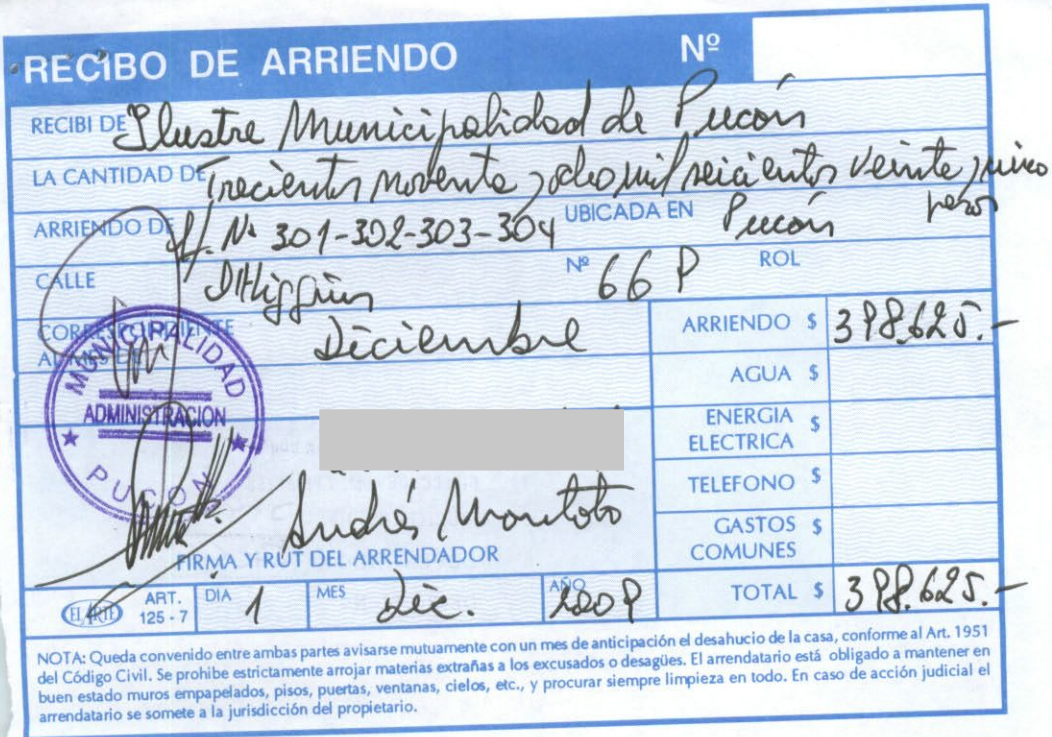 RECIBO DE ARRIENDO Nº
RECIBI DE Ilustre Municipalidad de Pucón
LA CANTIDAD DE Trecientos noventa y ocho mil seicientos veinte y cinco
pesos
ARRIENDO DE Of. Nº 301-302-303-304 UBICADA EN Pucón
CALLE O'Higgins Nº 66 P ROL
CORRESPONDIENTE
AL MES DE Diciembre
ARRIENDO $ 398.625.-
AGUA $
ENERGIA
ELECTRICA $
TELEFONO $
GASTOS
COMUNES $
TOTAL $ 398.625.-
MUNICIPALIDAD
ADMINISTRACION
PUCON
Andrés Montoto
FIRMA Y RUT DEL ARRENDADOR
EL ARTE ART.
125 - 7 DIA 1 MES Dic. AÑO
NOTA: Queda convenido entre ambas partes avisarse mutuamente con un mes de anticipación el desahucio de la casa, conforme al Art. 1951
del Código Civil. Se prohibe estrictamente arrojar materias extrañas a los excusados o desagües. El arrendatario está obligado a mantener en
buen estado muros empapelados, pisos, puertas, ventanas, cielos, etc., y procurar siempre limpieza en todo. En caso de acción judicial el
arrendatario se somete a la jurisdicción del propietario.